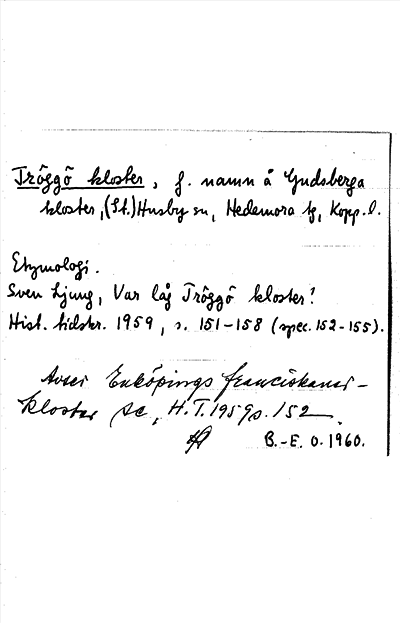 Tröggö kloster, f. namn å Gudsberga
kloster, (St.) Husby sn, Hedemora tg, Kopp. l.
Etymologi.
Sven Ljung, Var låg Tröggö kloster?
Hist. tidskr. 1959, s. 151-158 (spec. 152-155).
Avser Enköpings franciskaner-
kloster se, H.T. 1959 s. 152
B.-E. O. 1960.